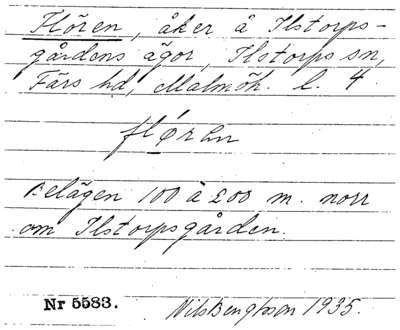 Flören, åker å Ilstorps-
gårdens ägor, Ilstorps sn,
Färs hd, Malmöh. l. 4
flørɛn
Belägen 100 à 200 m. norr
om Ilstorpsgården.
Nr 5583. Nils Bengtsson 1935.